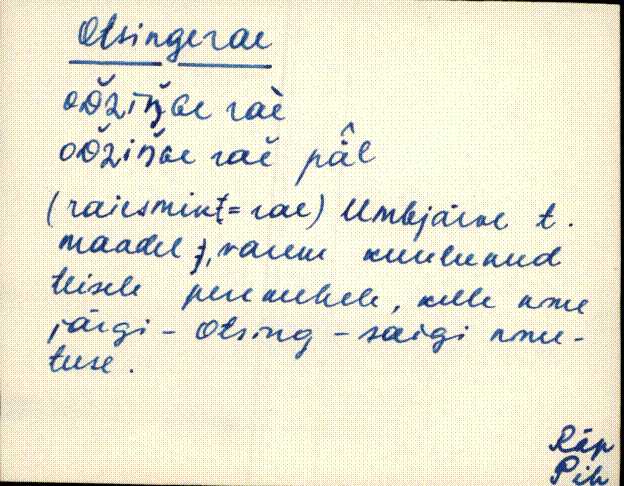 Otsingerae
oƌžiŋ̆ɢe raè
oƌžiŋ̆ɢe raè pä̂l
(raiesmik = rae) Umbjärve t.
maadel, varem kuulunud
teisele peremehele, kelle nime
järgi - Otsing - saigi nime-
tuse.
Räp
Pih